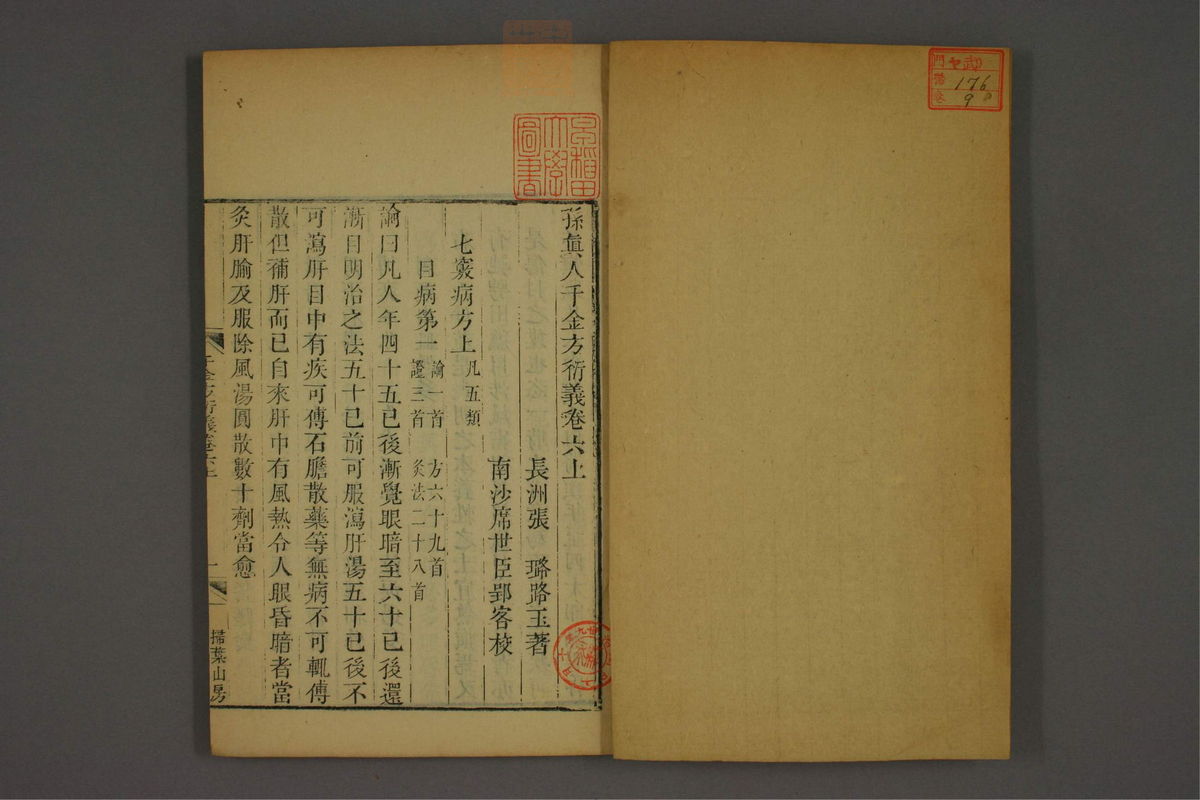 孫真人千金方衍義卷六上
長洲張　璐路玉著
南沙席世臣郢客校
七竅病方上凡五類
目病第一論一首　方六十九首
證三首　灸法二十八首
論曰凡人年四十五已後漸覺眼暗至六十已後還
漸目明治之法五十已前可服瀉肝湯五十已後不
可瀉肝目中有疾可傅石膽散藥等無病不可輒傅
散但補肝而已自來肝中有風熱令人眼昏暗者當
灸肝腧及服除風湯圓散數十劑當愈
千金方衍義卷六上
一
掃葉山房
早稲田
大學
圖書
門 ヤ09
號 176
卷 9